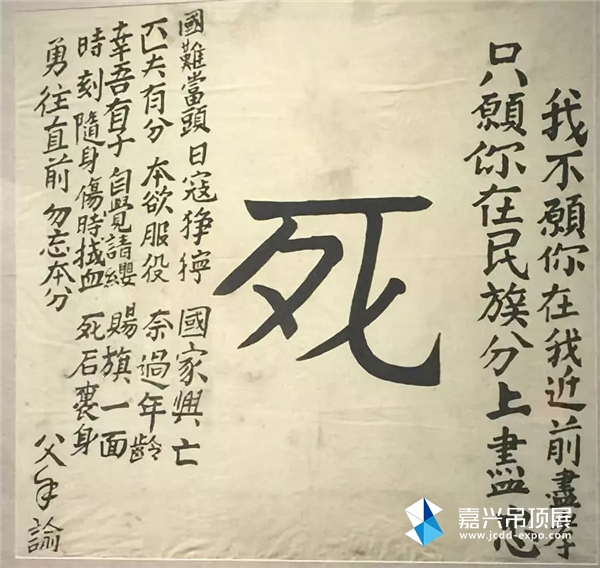 我不願你在我近前盡孝
只願你在民族分上盡忠
死
國難當頭 日寇猙獰 國家興亡
匹夫有分 本欲服役 奈過年齡
幸吾有子 自覺請纓 賜旗一面
時刻隨身 傷時拭血 死后裹身
勇往直前 勿忘本分
父手諭
嘉兴吊顶展
www.jcdd-expo.com